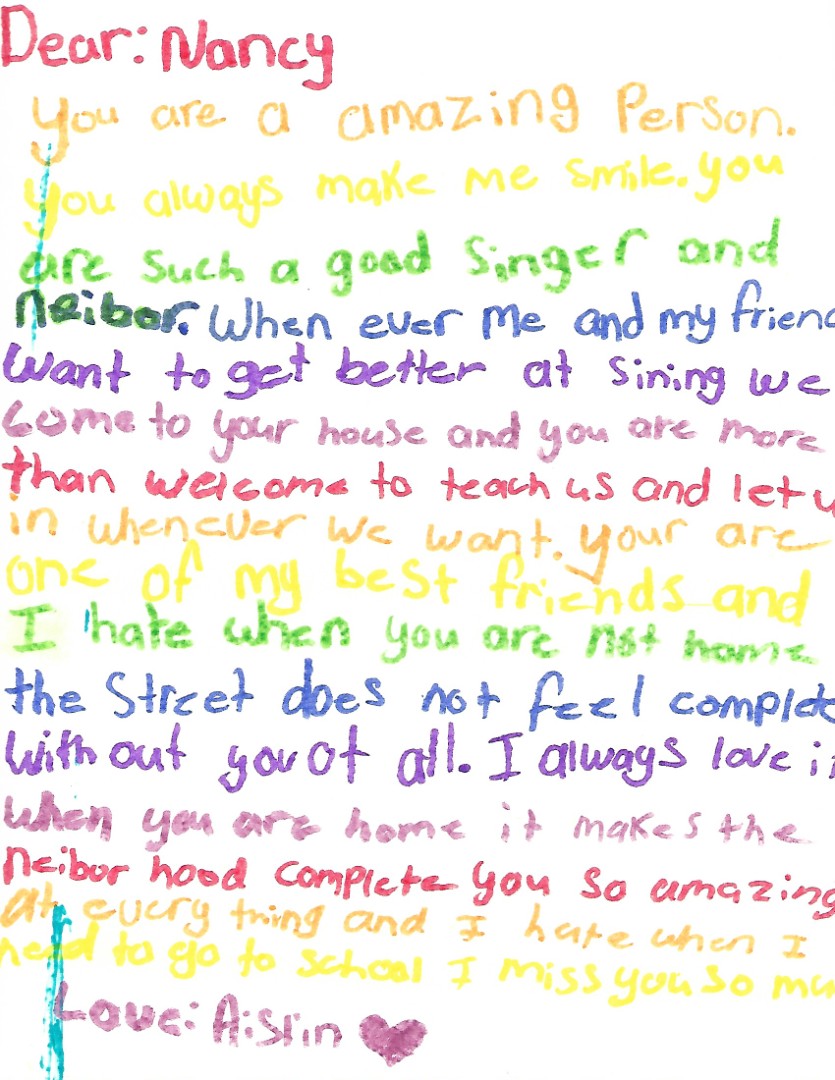 Dear: Nancy
you are a amazing Person.
you always make me smile. you
are such a good singer and
neibor. When ever me and my friend
want to get better at sining we
come to your house and you are more
than welcome to teach us and let u
in whenever we want. your are
one of my best friends and
I hate when you are not home
the Street does not feel complete
without you at all. I always love it
when you are home it makes the
neibor hood complete you so amazing
at every thing and I hate when I
need to go to school I miss you so mu
Love: Aislin